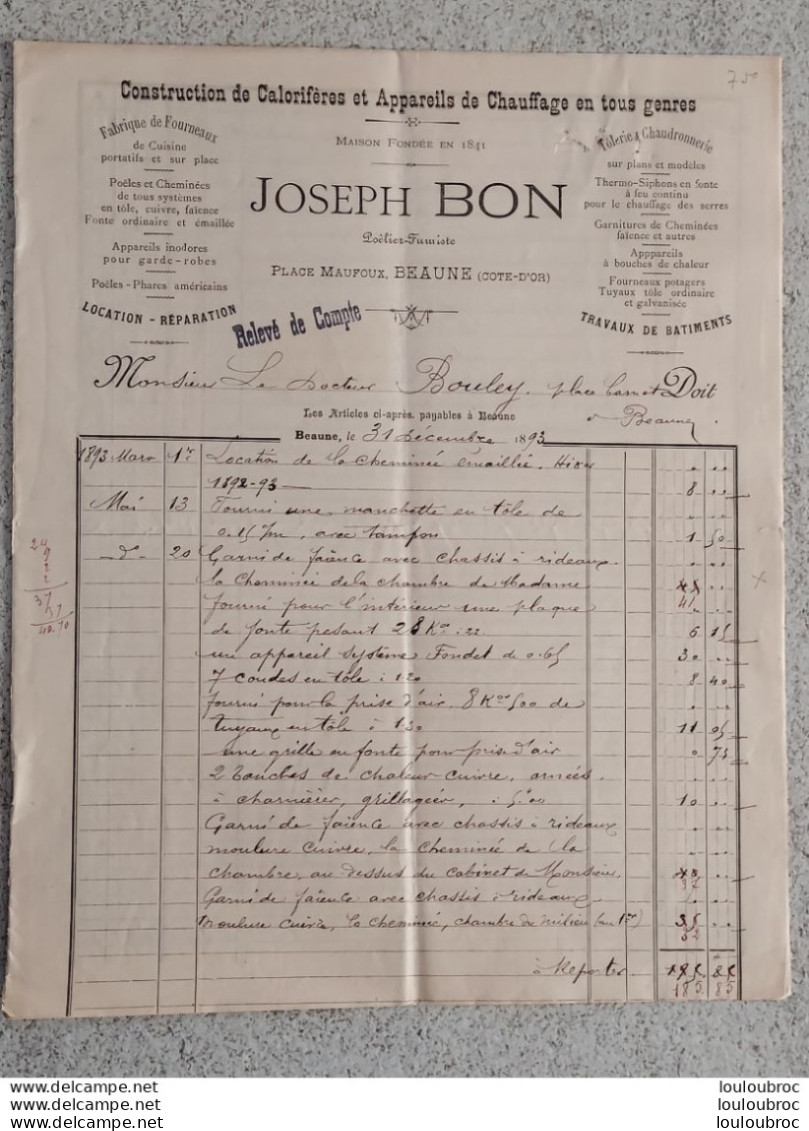 75°
Construction de Calorifères et Appareils de Chauffage en tous genres
Maison Fondée en 1841
JOSEPH BON
Poêlier-Fumiste
Place Maufoux, BEAUNE (COTE-D'OR)
Fabrique de Fourneaux
de Cuisine
portatifs et sur place
Poêles et Cheminées
de tous systèmes
en tôle, cuivre, faïence
Fonte ordinaire et émaillée
Appareils inodores
pour garde-robes
Poêles-Phares américains
LOCATION - RÉPARATION
Tôlerie & Chaudronnerie
sur plans et modèles
Thermo-Siphons en fonte
à feu continu
pour le chauffage des serres
Garnitures de Cheminées
faïence et autres
Apppareils
à bouches de chaleur
Fourneaux potagers
Tuyaux tôle ordinaire
et galvanisée
TRAVAUX DE BATIMENTS
Relevé de Compte
Monsieur Le Docteur Bouley, place Carnot Doit
Les Articles ci-après, payables à Beaune
Beaune
Beaune, le 31 Décembre 1893
1893 Mars 1er Location de la cheminée émaillée. Hiver
1892-93 — 8 "
Mai 13 Fourni une manchette en tôle de
0.15 /m, avec tampon 1 50
— d° — 20 Garni de faïence avec chassis à rideaux.
la Cheminée de la chambre de Madame 45 "
41
fourni pour l'intérieur une plaque
de fonte pesant 28 Kos : 22 6 15
un appareil système Fondet de 0.65 30 "
7 coudes en tôle : 1.20 8 40
fourni pour la prise d'air. 8 Kos 500 de
tuyaux en tôle à 1.30 11 05
une grille en fonte pour prise d'air 0 75
2 bouches de chaleur cuivre,
à charnières, grillagées, : 5.00 10 "
Garni de faïence avec chassis à rideaux
moulure cuivre, la Cheminée de la
chambre, au dessus du cabinet de Monsieur. 40 "
37
Garni de faïence avec chassis à rideaux
moulure cuivre, la cheminée, chambre du milieu (au 1er) 35 "
32
à Reporter 195 85
185 85